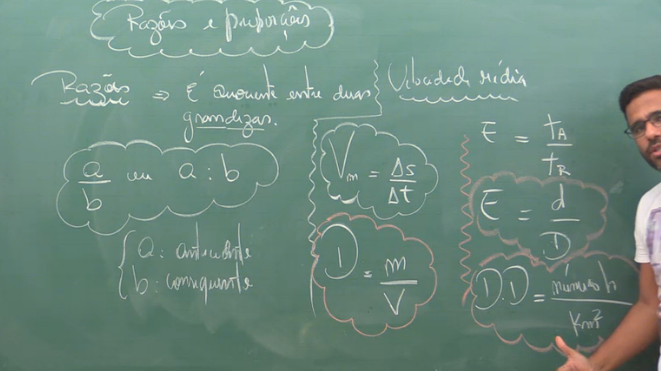 Razões e proporções
Razões ⇒ É quociente entre duas
grandezas.
a/b ou a : b
a: antecedente
b: consequente
Velocidade média
Vm = Δs/Δt
D = m/V
E = tA/tR
E = d/D
D.D = número h/Km²